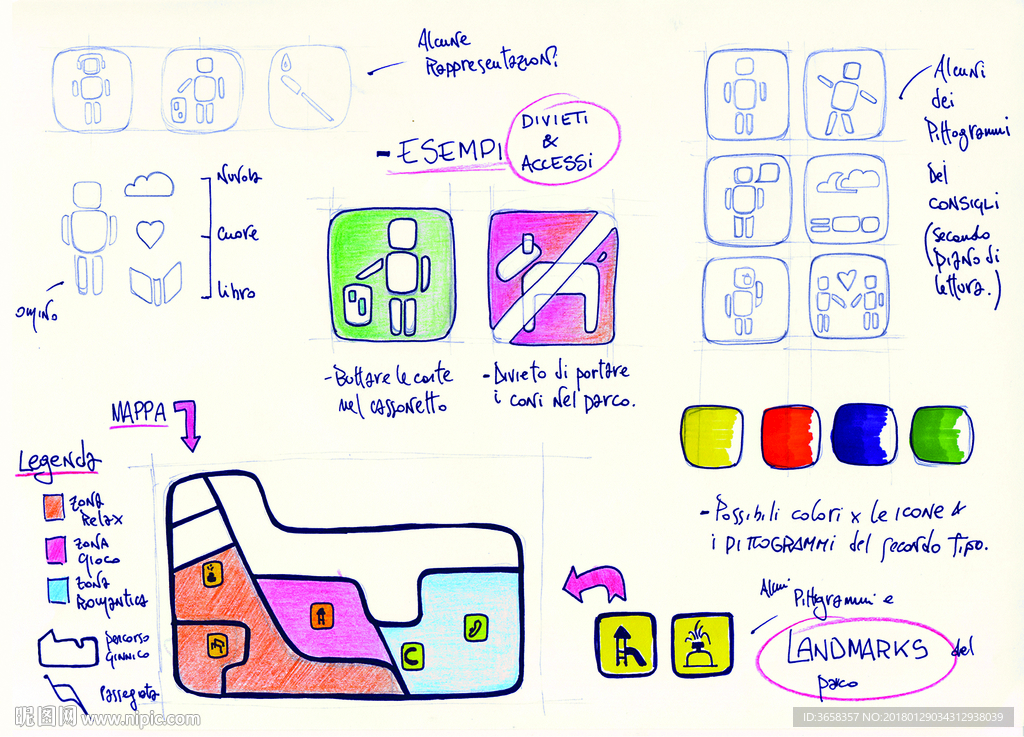 Alcune
Rappresentazioni
- ESEMPI
DIVIETI
&
ACCESSI
Alcuni
dei
Pittogrammi
Dei
CONSIGLI
(secondo
piano di
lettura.)
Nuvola
cuore
libro
omino
- Buttare le carte
nel cassonetto
- Divieto di portare
i cani nel parco.
MAPPA
Legenda
ZONA
Relax
ZONA
GIOCO
ZONA
ROMANTICA
percorso
GINNICO
Passeggiata
- Possibili colori x le icone &
i PITTOGRAMMI del secondo TIPO.
Alcuni Pittogrammi e
LANDMARKS del
parco
昵图网 www.nipic.com
ID:3658357 NO:20180129034312938039